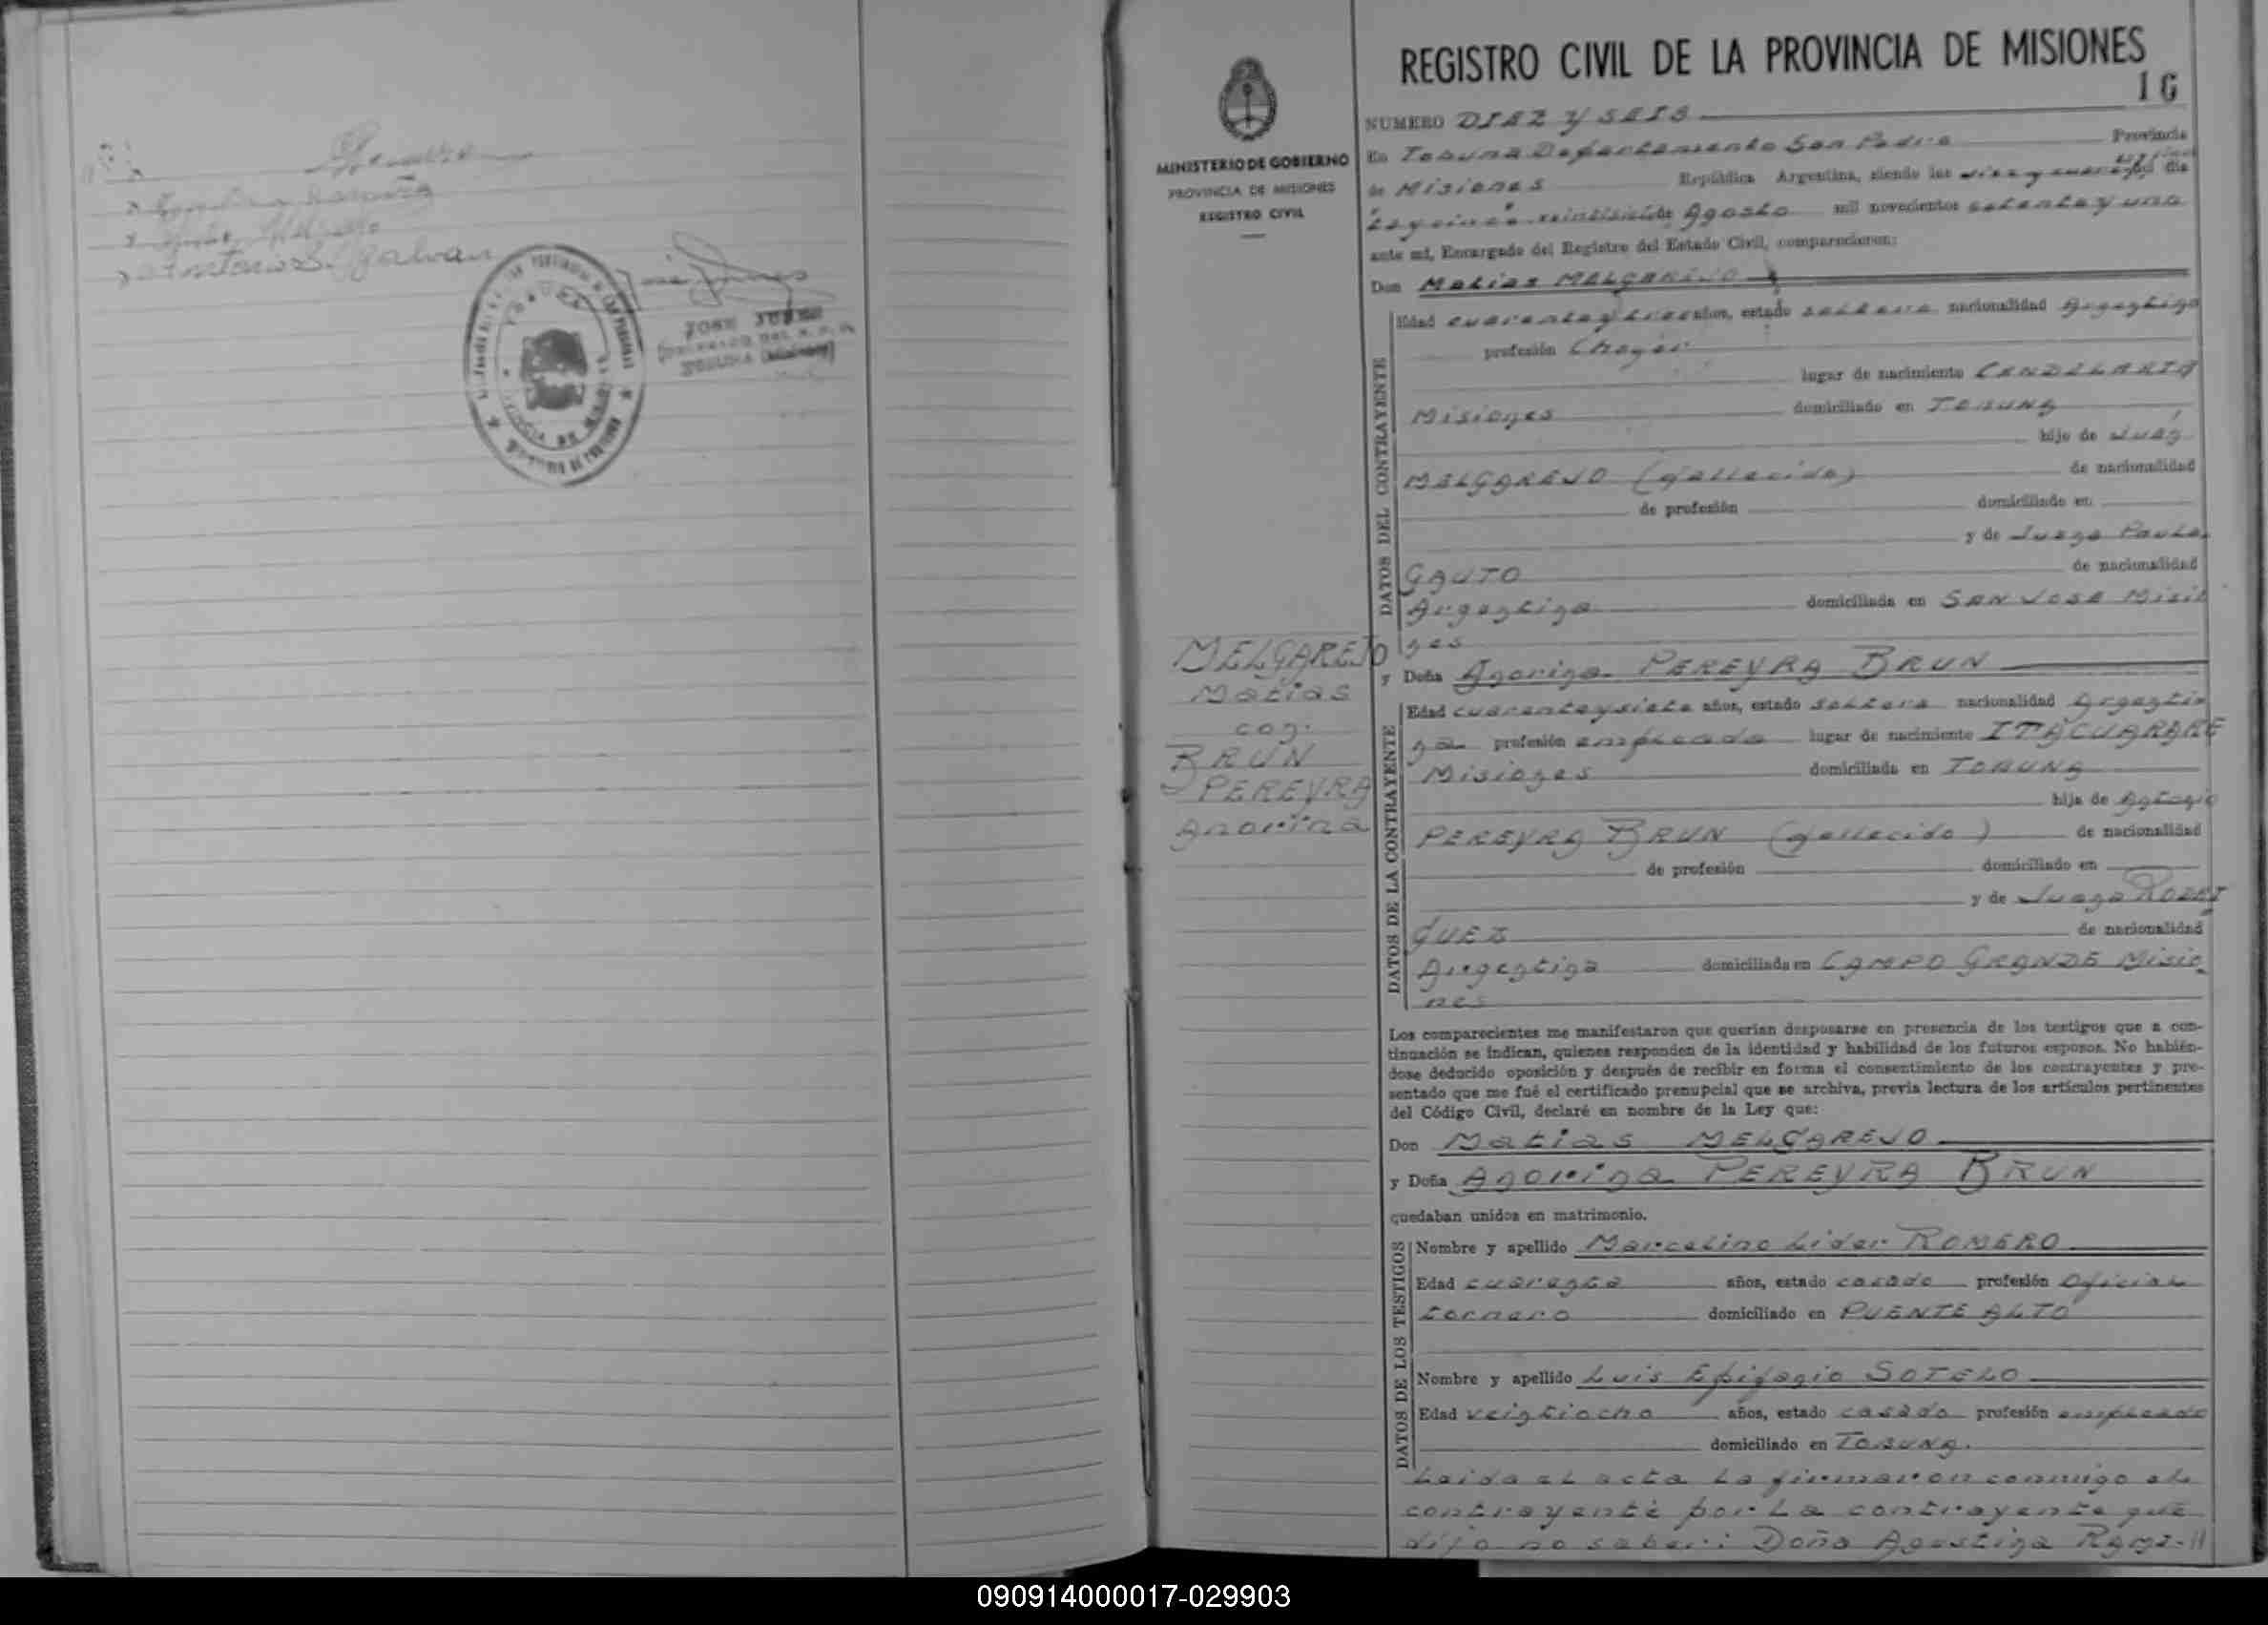 Antonio S. Galvan
JOSE
MINISTERIO DE GOBIERNO
PROVINCIA DE MISIONES
REGISTRO CIVIL
MELGAREJO
Matias
con
BRUN
PEREYRA
Anorina
REGISTRO CIVIL DE LA PROVINCIA DE MISIONES
16
NUMERO DIEZ Y SEIS
En Tobuna Departamento San Pedro Provincia
de Misiones República Argentina, siendo las diez y cuarenta día
de Agosto mil novecientos setenta y uno
ante mí, Encargado del Registro del Estado Civil, comparecieron:
Don Matias MELGAREJO
DATOS DEL CONTRAYENTE
Edad cuarenta y tres años, estado soltero nacionalidad Argentino
profesión Chofer
lugar de nacimiento CANDELARIA
Misiones domiciliado en TOBUNA
hijo de Juan
MELGAREJO (fallecido) de nacionalidad
de profesión domiciliado en
y de Juana Paula
GAUTO de nacionalidad
Argentina domiciliada en SAN JOSE Misio
nes
y Doña Anorina PEREYRA BRUN
DATOS DE LA CONTRAYENTE
Edad cuarenta y siete años, estado soltera nacionalidad Argenti
na profesión empleada lugar de nacimiento ITACUARARE
Misiones domiciliada en TOBUNA
hija de Antonio
PEREYRA BRUN (fallecido) de nacionalidad
de profesión domiciliado en
y de Juana RODRI
GUEZ de nacionalidad
Argentina domiciliada en CAMPO GRANDE Misio
nes
Los comparecientes me manifestaron que querían desposarse en presencia de los testigos que a con-
tinuación se indican, quienes responden de la identidad y habilidad de los futuros esposos. No habién-
dose deducido oposición y después de recibir en forma el consentimiento de los contrayentes y pre-
sentado que me fué el certificado prenupcial que se archiva, previa lectura de los artículos pertinentes
del Código Civil, declaré en nombre de la Ley que:
Don Matias MELGAREJO
y Doña Anorina PEREYRA BRUN
quedaban unidos en matrimonio.
DATOS DE LOS TESTIGOS
Nombre y apellido Marcelino Lider ROMERO
Edad cuarenta años, estado casado profesión Oficial
tornero domiciliado en PUENTE ALTO
Nombre y apellido Luis Epifanio SOTELO
Edad veintiocho años, estado casado profesión empleado
domiciliado en TOBUNA.
Leida el acta la firmaron conmigo el
contrayente por la contrayente que
dijo no saber: Doña Agustina Rami-//
090914000017-029903